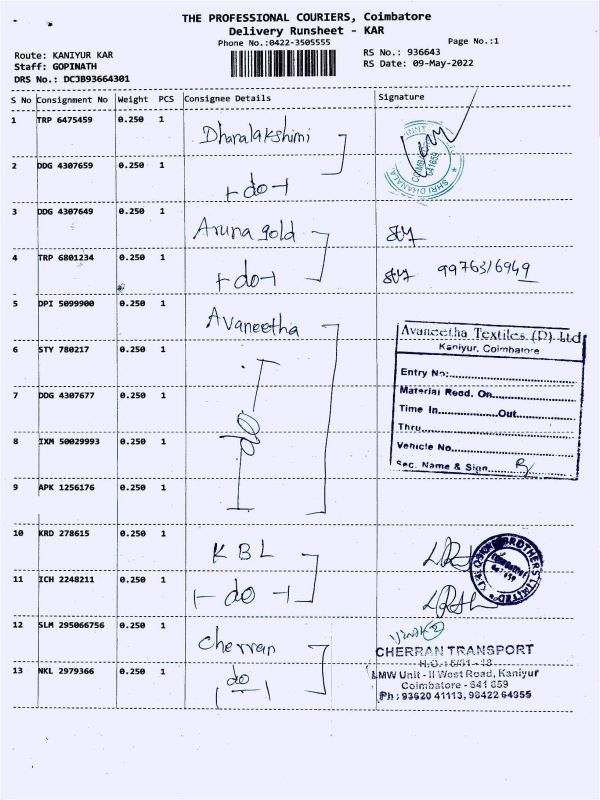 THE PROFESSIONAL COURIERS, Coimbatore
Delivery Runsheet - KAR
Phone No.:0422-3505555
Page No.:1
Route: KANIYUR KAR
Staff: GOPINATH
DRS No.: DCJB93664301
RS No.: 936643
RS Date: 09-May-2022
S No Consignment No Weight PCS Consignee Details Signature
1 TRP 6475459 0.250 1 Dhanalakshimi
COIMBATORE 641659
SHRI DHANALA
2 DDG 4307659 0.250 1 -do-
3 DDG 4307649 0.250 1 Aruna gold
4 TRP 6801234 0.250 1 -do- 9976316949
5 DPI 5099900 0.250 1 Avaneetha
Avaneetha Textiles (P) Ltd
Kaniyur, Coimbatore
6 STY 780217 0.250 1
Entry No:
7 DDG 4307677 0.250 1 do
Material Recd. On
Time In Out
Thru
8 IXM 50029993 0.250 1
Vehicle No
Sec. Name & Sign
9 APK 1256176 0.250 1
10 KRD 278615 0.250 1 KBL
BROTHERS LIMITED
11 ICH 2248211 0.250 1 -do-
12 SLM 295066756 0.250 1 Cherran
CHERRAN TRANSPORT
13 NKL 2979366 0.250 1 do
LMW Unit - II West Road, Kaniyur
Coimbatore - 641 659
Ph : 93620 41113, 98422 64955